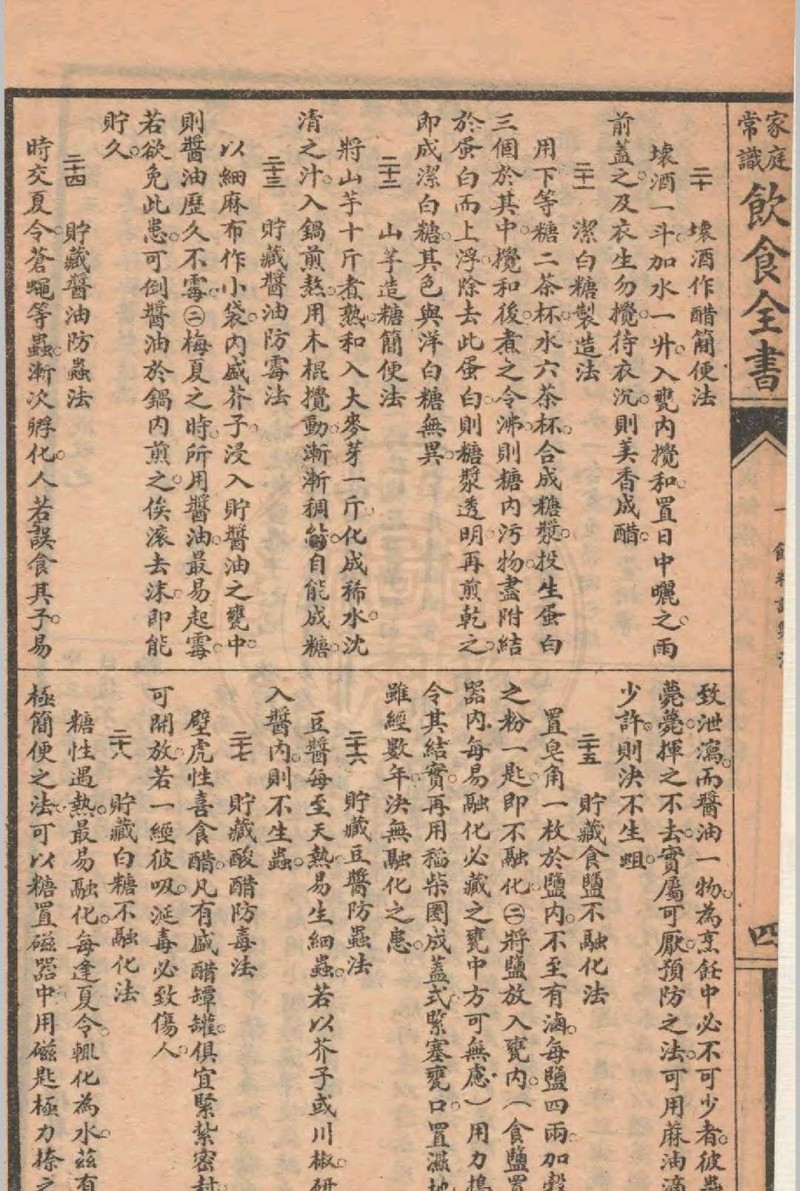 家庭
常識
飲食全書
四
二十　壞酒作醋簡便法
壞酒一斗。加水一升。入甕內攪和。置日中曬之。雨
前蓋之。及衣生勿攪。待衣沉。則美香成醋。
二十一　潔白糖製造法
用下等糖二茶杯。水六茶杯。合成糖漿。投生蛋白
三個於其中。攪和後。煮之令沸。則糖內污物。盡附結
於蛋白而上浮。除去此蛋白。則糖漿透明。再煎乾之。
即成潔白糖。其色與洋白糖無異。
二十二　山芋造糖簡便法
將山芋十斤煮熟。和入大麥芽一斤。化成稀水。沈
清之汁。入鍋煎熬。用木棍攪動。漸漸稠黏。自能成糖。
二十三　貯藏醬油防霉法
以細麻布作小袋。內盛芥子。浸入貯醬油之甕中。
則醬油歷久不霉。㊁梅夏之時。所用醬油。最易起霉。
若欲免此患。可倒醬油於鍋內煎之。俟滾去沫。即能
貯久。
二十四　貯藏醬油防蟲法
時交夏令。蒼蠅等蟲。漸次孵化。人若誤食其子。易
致泄瀉。而醬油一物。為烹飪中必不可少者。彼蟲
薨薨。揮之不去。實屬可厭。預防之法。可用蔴油滴
少許。則決不生蛆。
二十五　貯藏食鹽不融化法
置皂角一枚於鹽內。不至有滷。每鹽四兩。加穀
之粉一匙。即不融化。㊁將鹽放入甕內。（食鹽置
器內。每易融化。必藏之甕中。方可無慮。）用力搗
令其結實。再用稻柴圈成蓋式。緊塞甕口。置濕地
雖經數年。決無融化之患。
二十六　貯藏豆醬防蟲法
豆醬每至天熱。易生細蟲。若以芥子或川椒研
入醬內。則不生蟲。
二十七　貯藏酸醋防毒法
壁虎性喜食醋。凡有盛醋罈罐。俱宜緊紮密封
可開放。若一經彼吸。涎毒必致傷人。
二十八　貯藏白糖不融化法
糖性遇熱。最易融化。每逢夏令。輒化為水。茲有
極簡便之法。可以糖置磁器中。用磁匙極力捺之